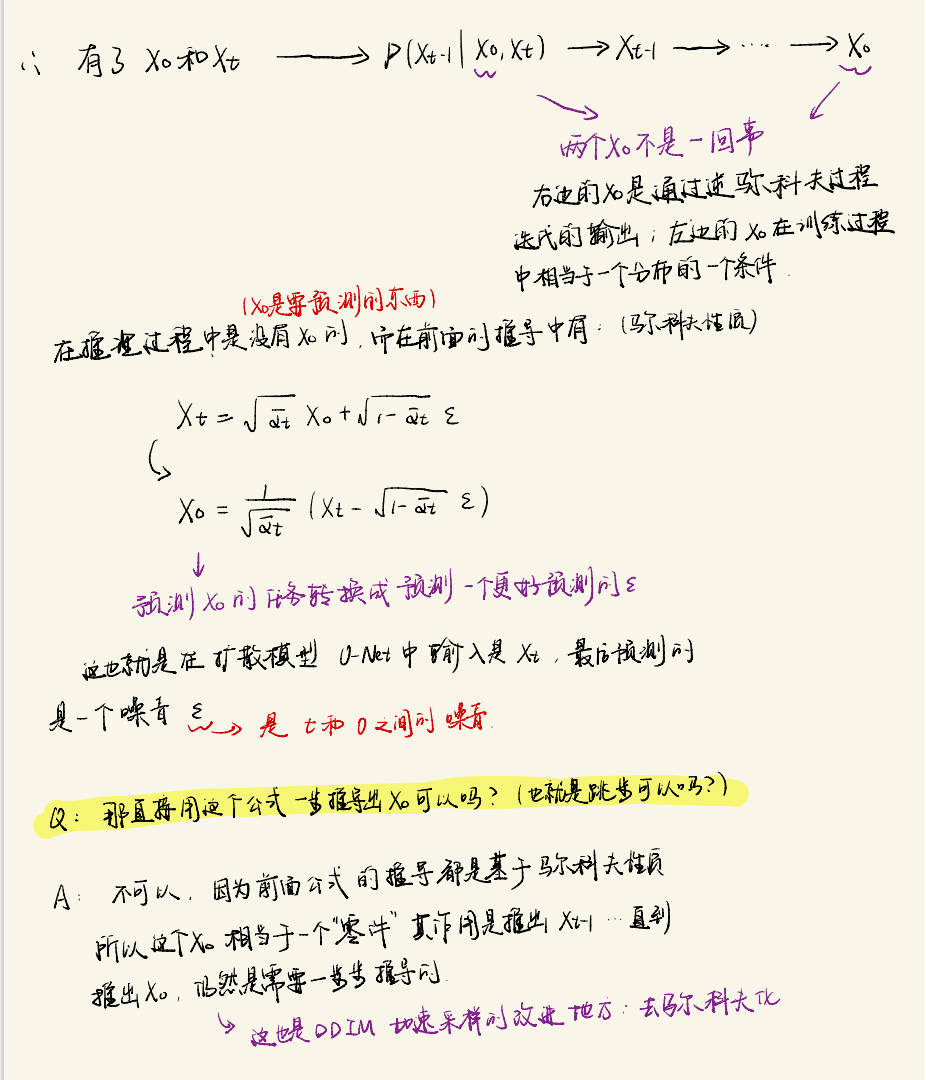 ∴ 有了 X₀和Xₜ ⟶ P(Xₜ₋₁ | X₀, Xₜ) → Xₜ₋₁ → ⋯ → X₀
两个X₀不是一回事
右边的X₀是通过逆马尔科夫过程
迭代的输出；左边的X₀在训练过程
中相当于一个分布的一个条件.
(X₀是要预测的东西)
在推理过程中是没有X₀的，而在前面的推导中有：(马尔科夫性质)
Xₜ = √ᾱₜ X₀ + √(1-ᾱₜ) ε
X₀ = 1/√ᾱₜ (Xₜ - √(1-ᾱₜ) ε)
预测X₀的任务转换成预测一个更好预测的ε
这也就是在扩散模型 U-Net中输入是Xₜ，最后预测的
是一个噪音 ε → 是 t和0之间的噪音.
Q： 那直接用这个公式一步推导出X₀可以吗？(也就是跳步可以吗？)
A： 不可以，因为前面公式的推导都是基于马尔科夫性质
所以这个X₀相当于一个“零件” 其作用是推出 Xₜ₋₁ ⋯直到
推出X₀，仍然是需要一步步推导的.
这也是DDIM 加速采样的改进地方：去马尔科夫化